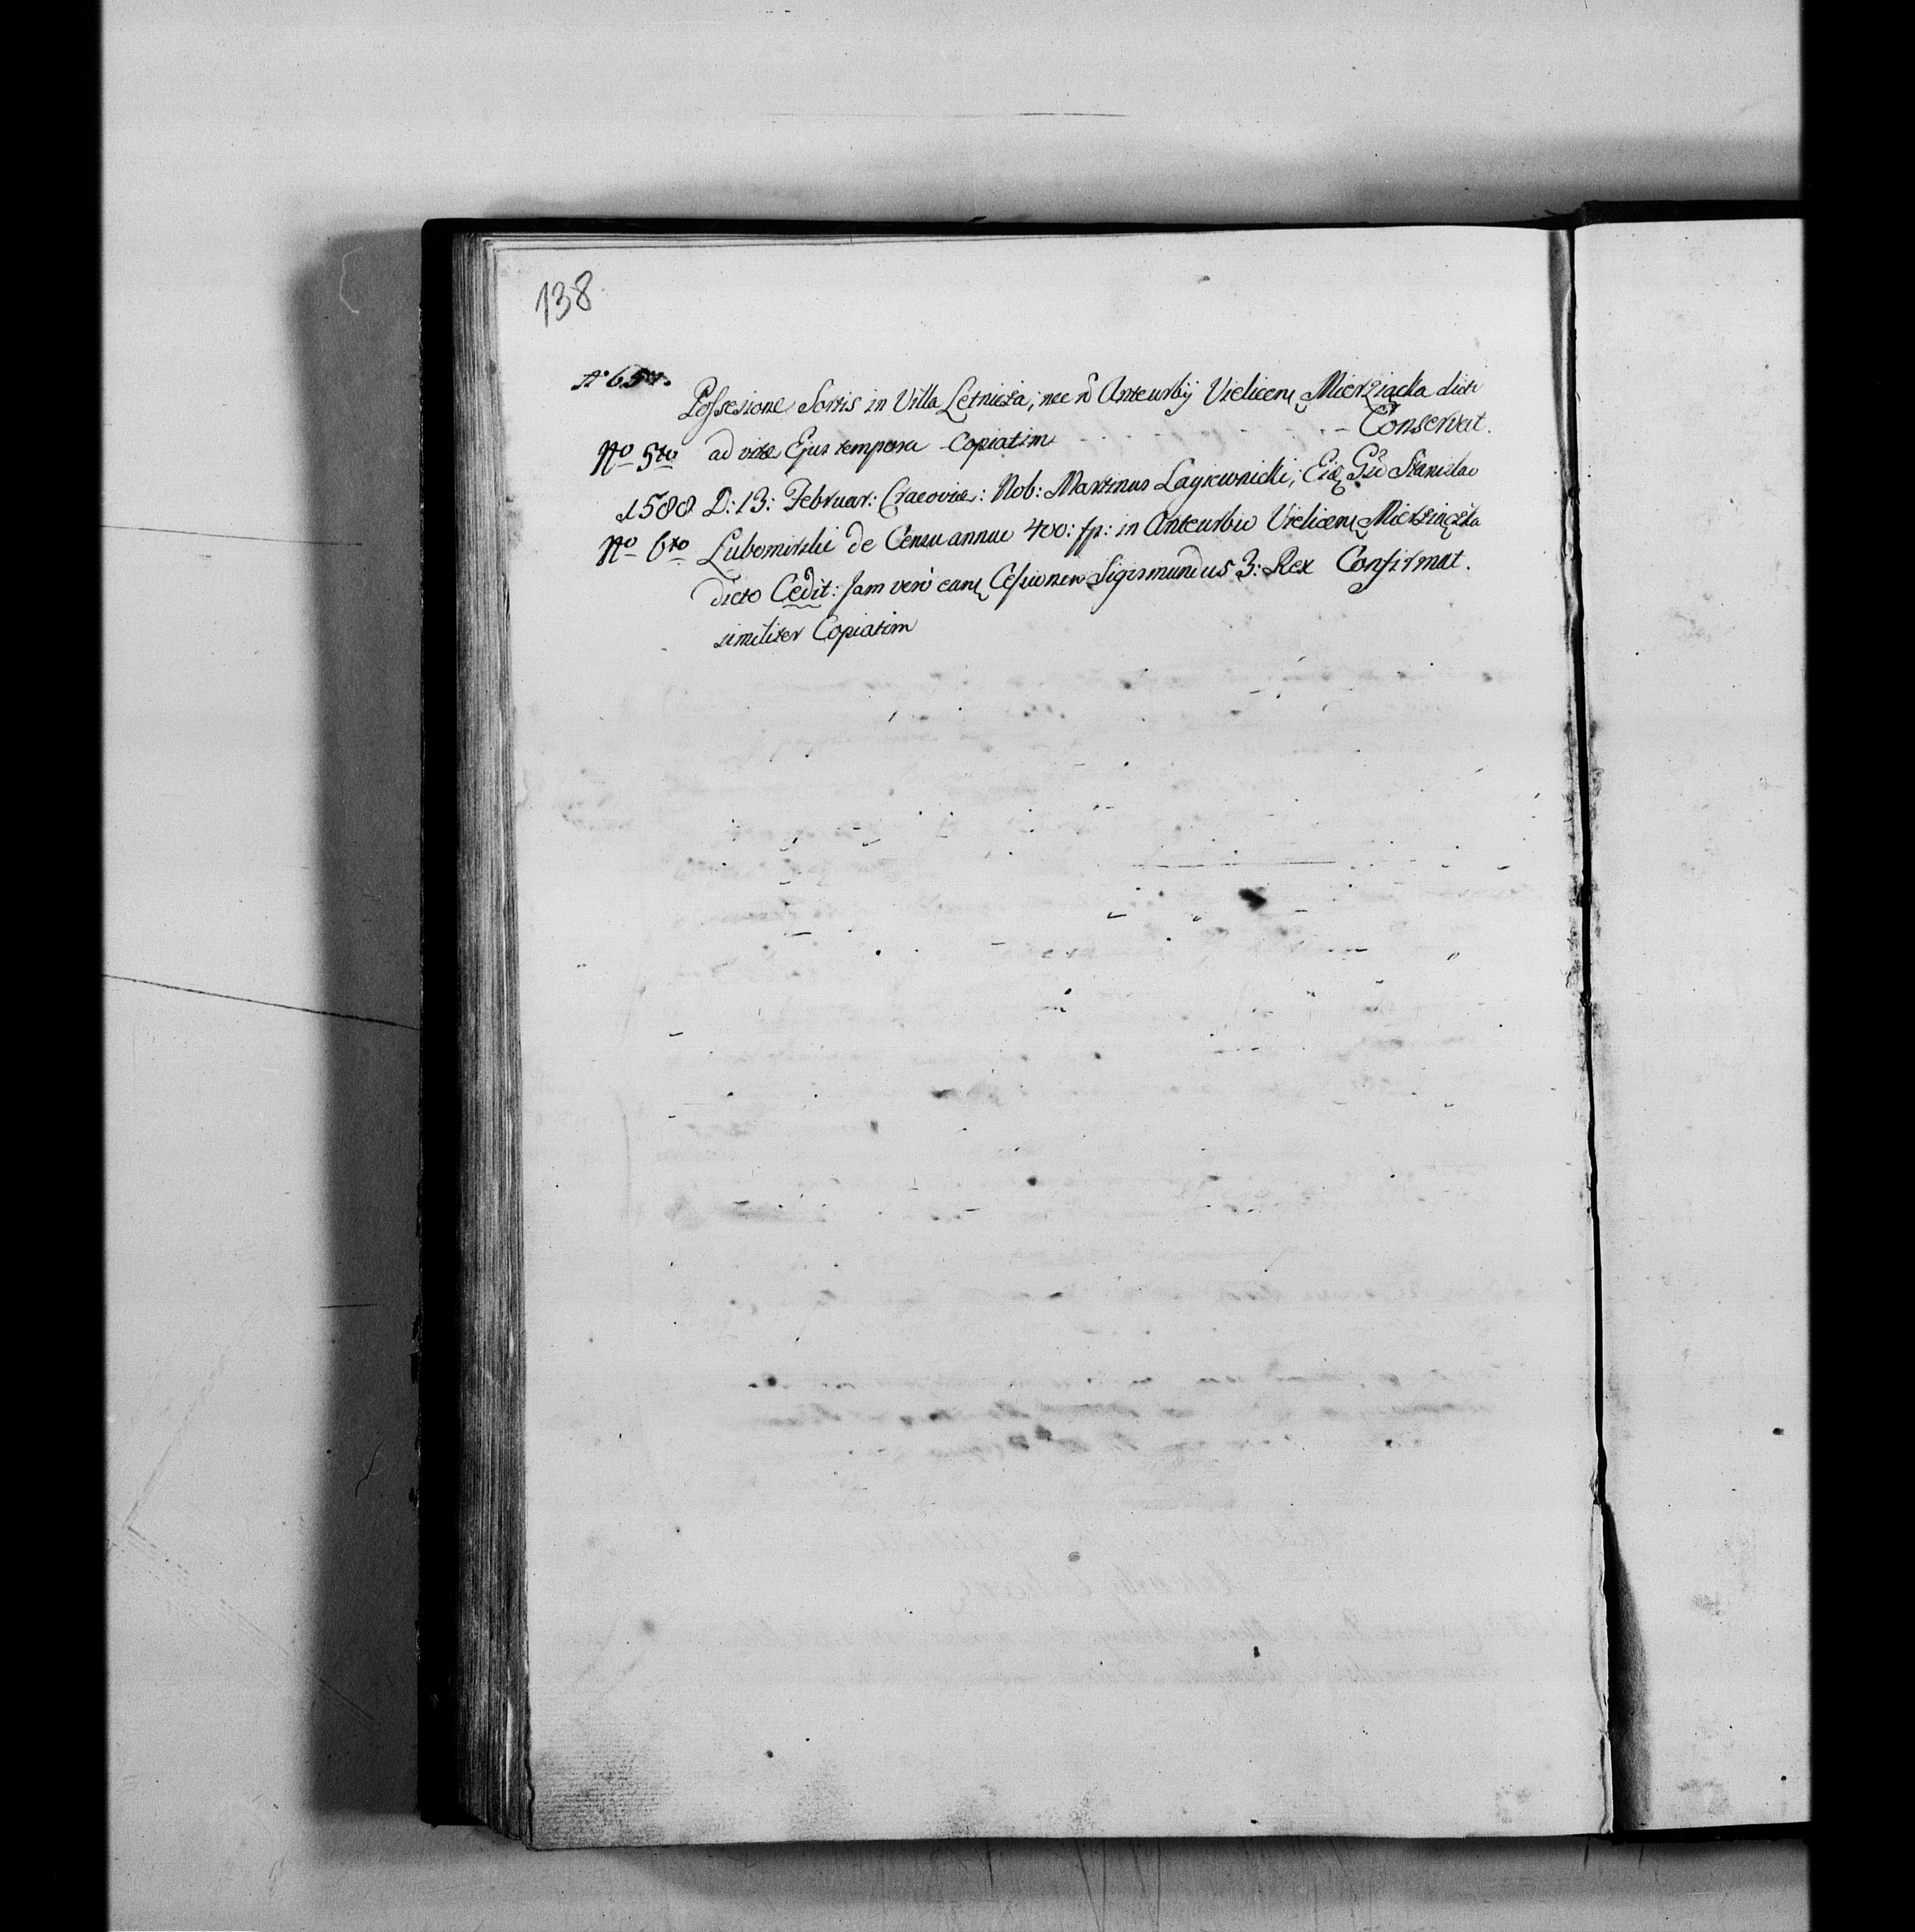 138
Possesione Sortis in Villa Letnicza; nec n̄ Anteurbij Vieliceñ Mierziączka dicti
Conservat.
No 5to ad vitæ Ejus tempora Copiatim
1588 D: 13: Februar: Cracoviæ: Nob: Martinus Lagiewnicki; Stanislao
No 6to Lubomirski de Censu annuo 400: fp: in Anteurbio Vieliceñ Mierziączka
dicto Cedit: Jam verò eam Cessionem Sigismundus 3: Rex Confirmat.
similiter Copiatim